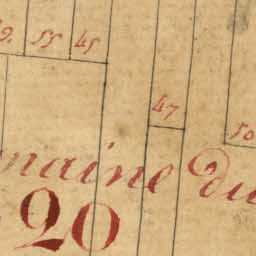 9. 55 45
47
50
maine du
20